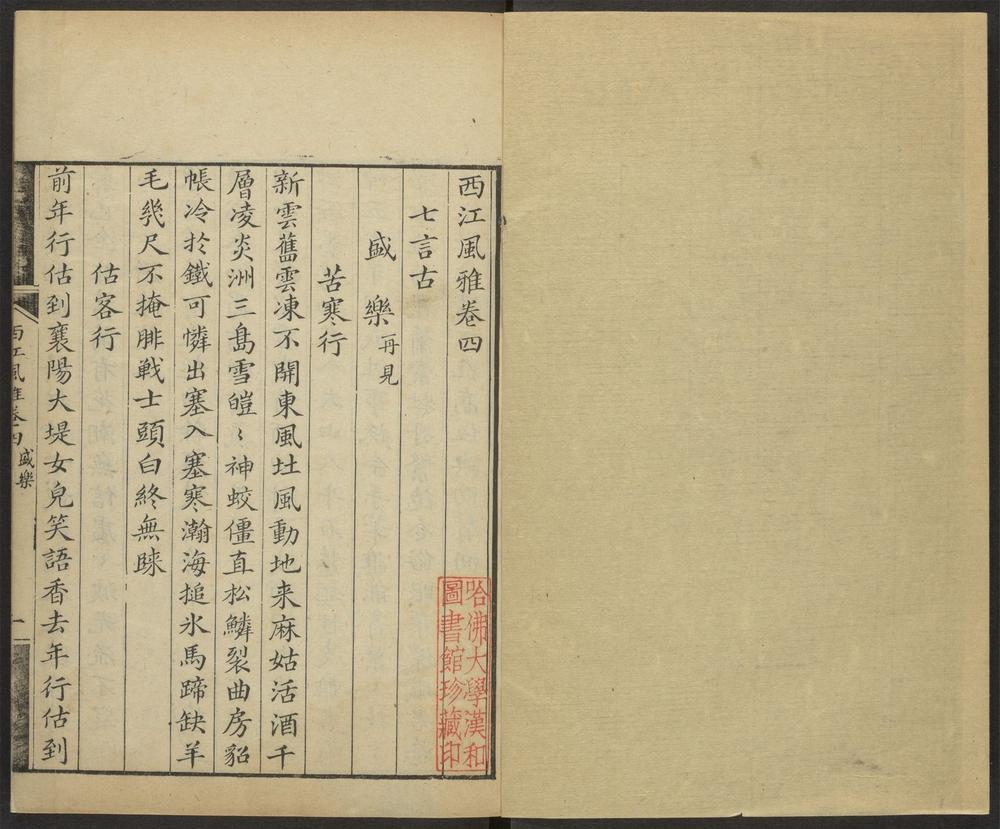 西江風雅卷四
七言古
盛樂再見
苦寒行
新雲舊雲凍不開東風灶風動地来麻姑活酒千
層凌炎洲三島雪皚〻神蛟僵直松鱗裂曲房貂
帳冷扵鐵可憐出塞入塞寒瀚海搥氷馬蹄缺羊
毛㡬尺不掩腓戰士頭白終無睞
估客行
前年行估到襄陽大堤女皃笑語香去年行估到
西江風雅卷四 盛樂 一
哈佛大學漢和
圖書館珍藏印